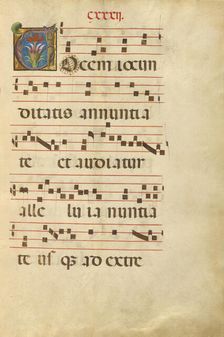 cxxxij.
Vocem iocun
ditatis annuntia
te et audiatur
alle lu ia nuntia
te usq3 ad extre